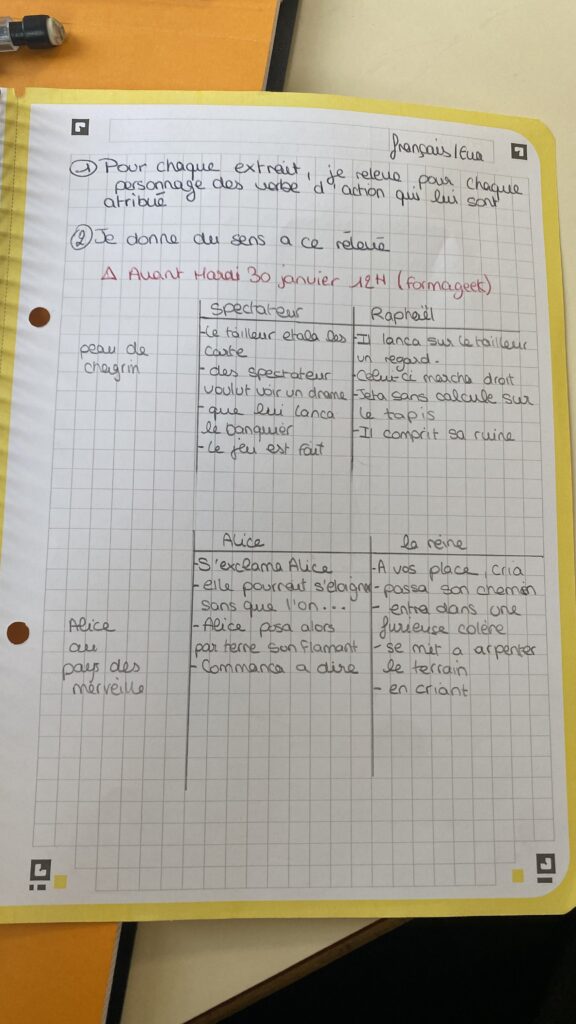 français/Eva
① Pour chaque extrait, je releve pour chaque
personnage des verbe d'action qui lui sont
atribué
② Je donne du sens a ce rélevé
Δ Avant Mardi 30 janvier 12H (formageek)
Spectateur
Raphaël
peau de
chagrin
-Le tailleur etala les
carte
- des spectateur
voulut voir un drame
- que lui lança
le banquier
- Le jeu est fait
-Il lança sur le tailleur
un regard.
-Celui-ci marcha droit
-Jeta sans calcule sur
le tapis
-Il comprit sa ruine
Alice
la reine
Alice
au
pays des
merveille
-S'exclama Alice
- elle pourrait s'eloigner
sans que l'on...
- Alice posa alors
par terre son flamant
- Commança a dire
-A vos place, cria
- passa son chemin
- entra dans une
furieuse colère
- se mit a arpenter
le terrain
- en criant